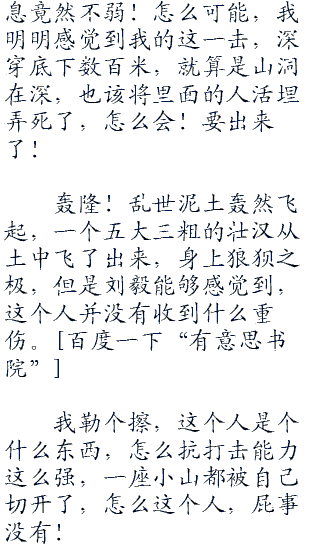 息竟然不弱！怎么可能，我
明明感觉到我的这一击，深
穿底下数百米，就算是山洞
在深，也该将里面的人活埋
弄死了，怎么会！要出来
了！
轰隆！乱世泥土轰然飞
起，一个五大三粗的壮汉从
土中飞了出来，身上狼狈之
极，但是刘毅能够感觉到，
这个人并没有收到什么重
伤。[百度一下“有意思书
院”]
我勒个擦，这个人是个
什么东西，怎么抗打击能力
这么强，一座小山都被自己
切开了，怎么这个人，屁事
没有！